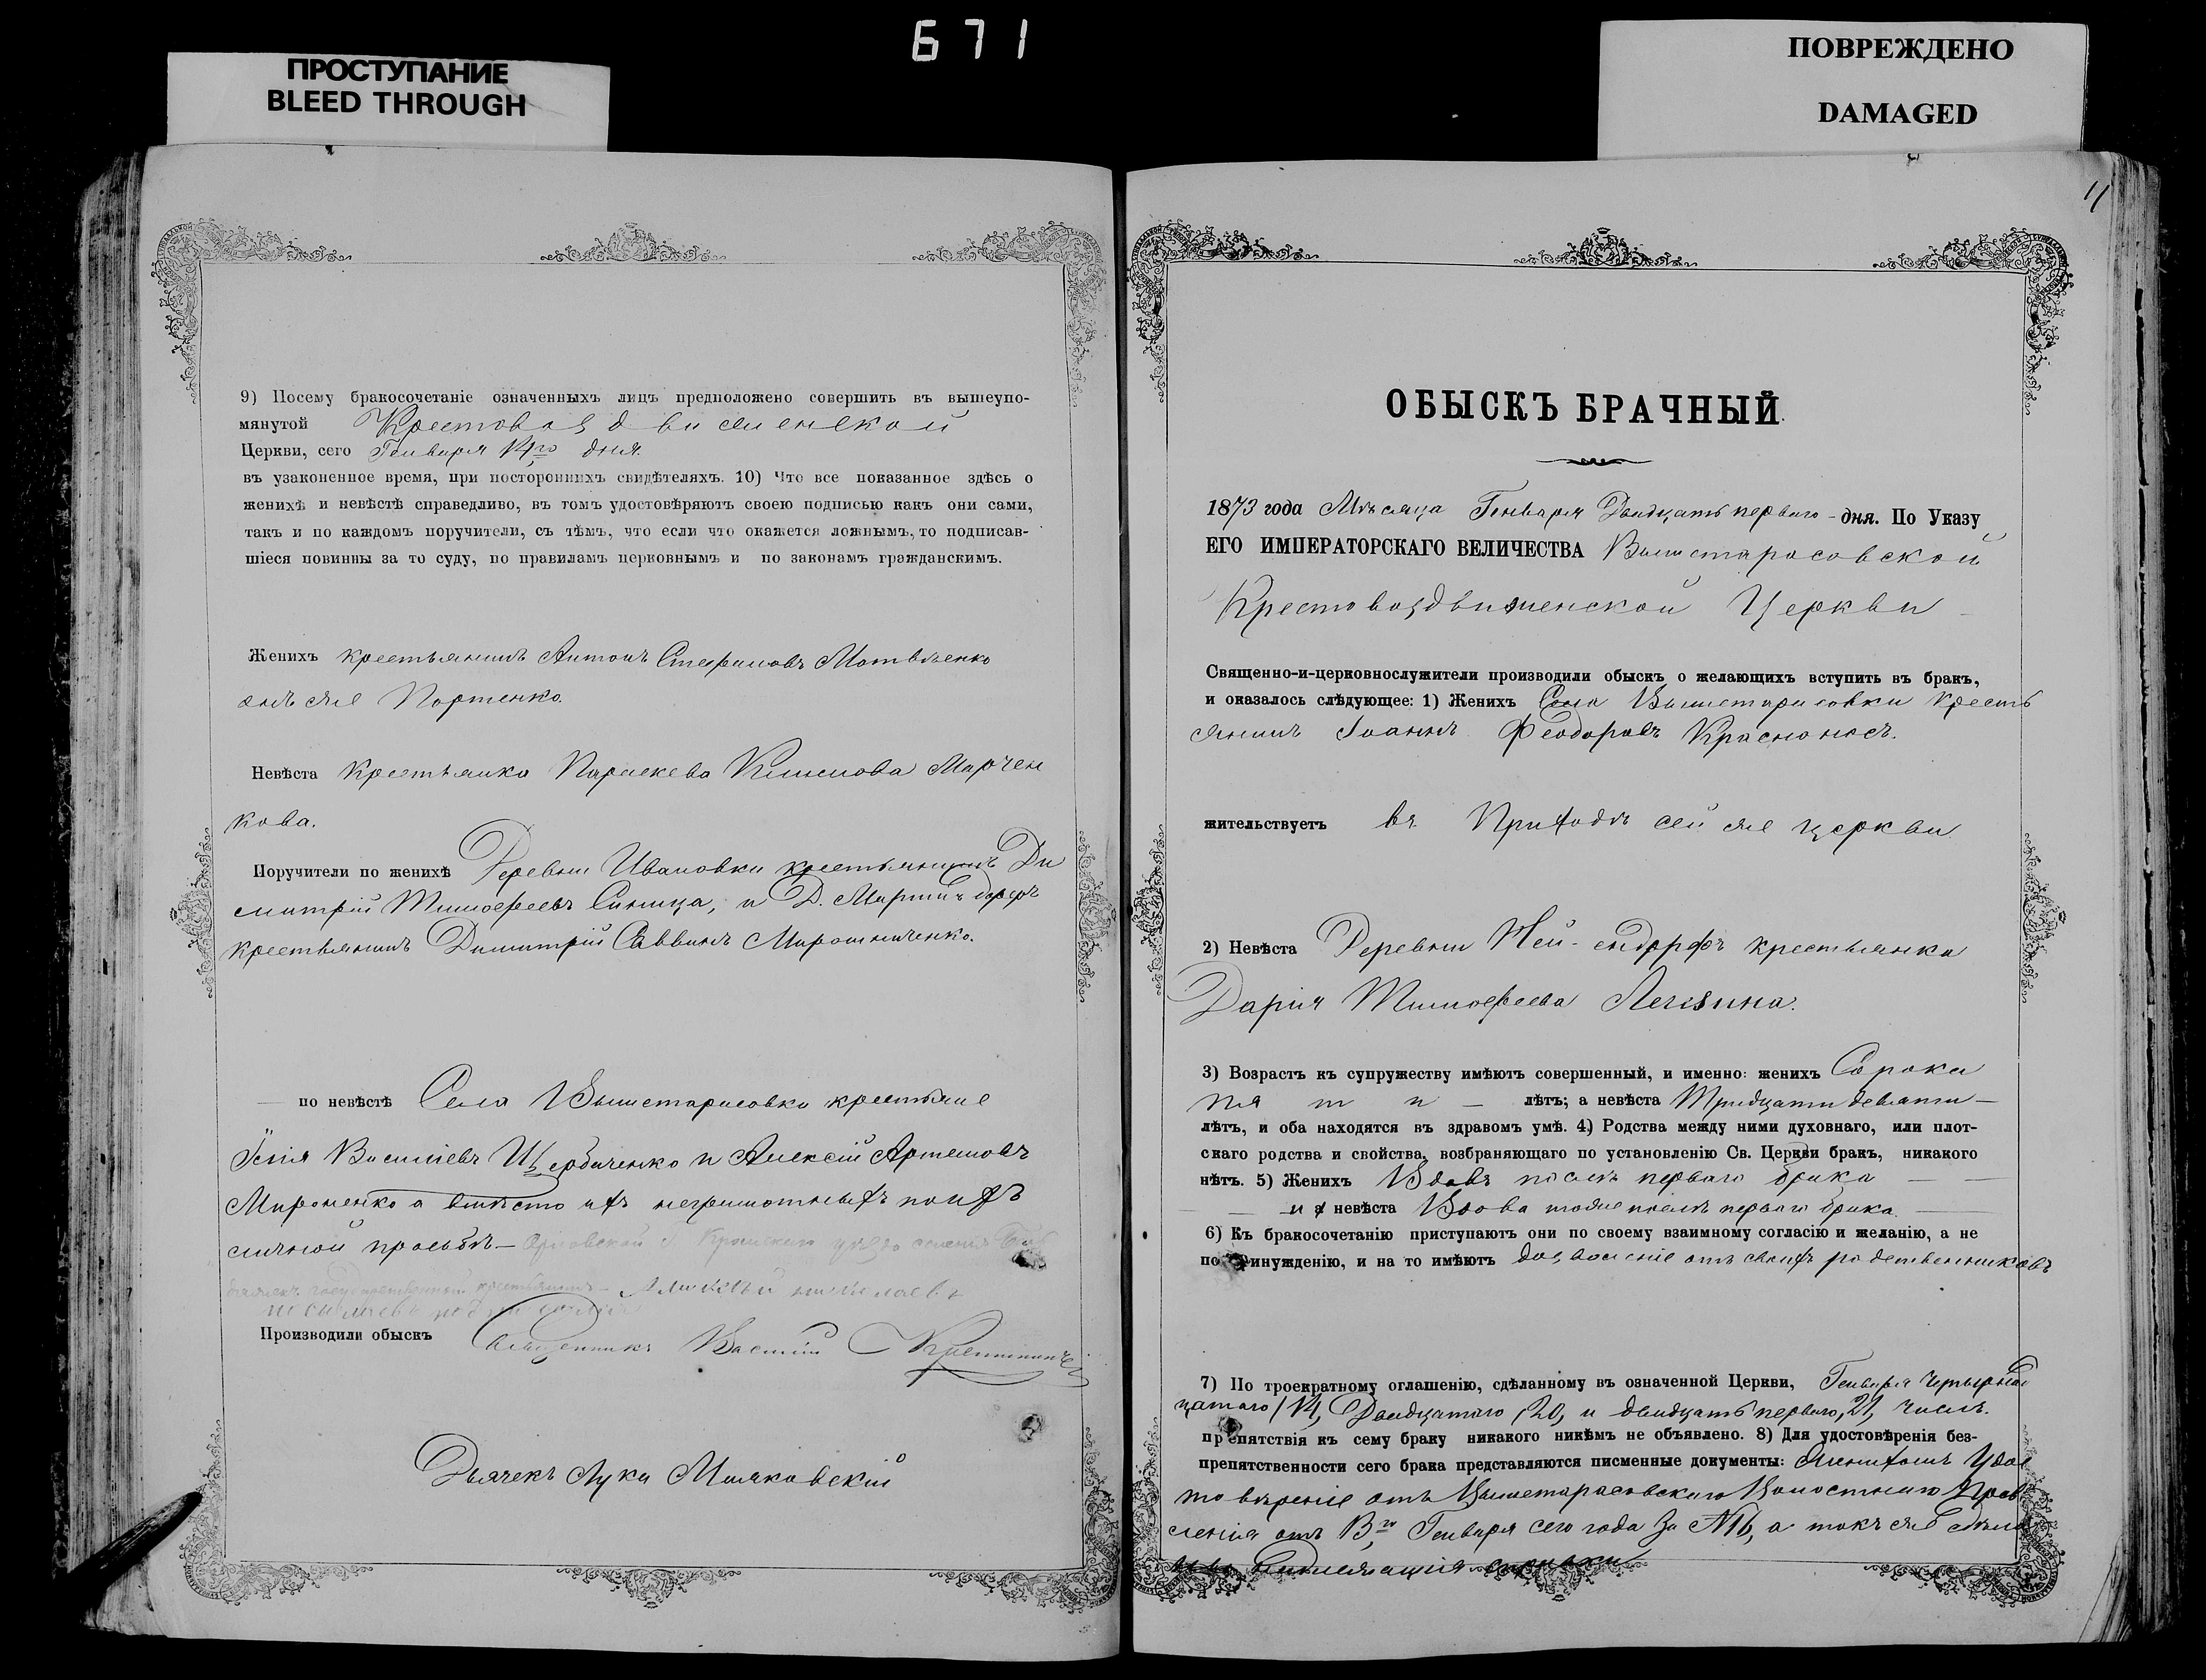 671
ПРОСТУПАНИЕ
BLEED THROUGH
ПОВРЕЖДЕНО
DAMAGED
9) Посему бракосочетаніе означенныхъ лицъ предположено совершить въ вышеупо-
мянутой Крестовоздвиженской
Церкви, сего Генваря 14го дня.
въ узаконенное время, при постороннихъ свидѣтеляхъ. 10) Что все показанное здѣсь о
женихѣ и невѣстѣ справедливо, въ томъ удостовѣряютъ своею подписью какъ они сами,
такъ и по каждомъ поручители, съ тѣмъ, что если что окажется ложнымъ, то подписав-
шіеся повинны за то суду, по правиламъ церковнымъ и по законамъ гражданскимъ.
Женихъ крестьянинъ Антонъ Стефановъ Матвѣенко
онъ же Портенко.
Невѣста Крестьянка Параскева Климова Марчен
кова.
Поручители по женихѣ Деревни Ивановки крестьянинъ Ди
митрій Тимофеевъ Синица, и Д.
крестьянинъ Димитрій Саввинъ Мирошниченко.
по невѣстѣ Села Вышетарасовки крестьяне
Василіевъ Щербаченко и Алексій Артемовъ
Мироненко а вмѣсто ихъ неграмотныхъ по ихъ
личной просьбѣ —
Производили обыскъ Священникъ Василій
Дьячекъ Лука Маяковскій
11
ОБЫСКЪ БРАЧНЫЙ.
1873 года Мѣсяца Генваря Двадцать перваго - дня. По Указу
ЕГО ИМПЕРАТОРСКАГО ВЕЛИЧЕСТВА Вышетарасовской
Крестовоздвиженской Церкви
Священно-и-церковнослужители производили обыскъ о желающихъ вступить въ бракъ,
и оказалось слѣдующее: 1) Женихъ Села Вышетарасовки Кресть
янинъ Іоаннъ Феодоровъ Красноносъ.
жительствуетъ въ Приходѣ сей же церкви
2) Невѣста Деревни Ней-ендорфъ крестьянка
Дарія Тимофеева
3) Возрастъ къ супружеству имѣютъ совершенный, и именно: женихъ Сорока
пяти — лѣтъ; а невѣста Тридцати девяти —
лѣтъ, и оба находятся въ здравомъ умѣ. 4) Родства между ними духовнаго, или плот-
скаго родства и свойства, возбраняющаго по установленію Св. Церкви бракъ, никакого
нѣтъ. 5) Женихъ Вдовъ послѣ перваго брака
и а невѣста Вдова тоже послѣ перваго брака
6) Къ бракосочетанію приступаютъ они по своему взаимному согласію и желанію, а не
по принужденію, и на то имѣютъ дозволеніе отъ своихъ родственниковъ
7) По троекратному оглашенію, сдѣланному въ означенной Церкви, Генваря четырнад
цатаго 14, Двадцатаго 20, и двадцать перваго, 21, числъ.
препятствія къ сему браку никакого никѣмъ не объявлено. 8) Для удостовѣренія без-
препятственности сего брака представляются писменные документы: Женихомъ Удос
товѣреніе отъ Вышетарасовскаго Волостнаго Прав
ленія отъ Генваря сего года За № а также
справки